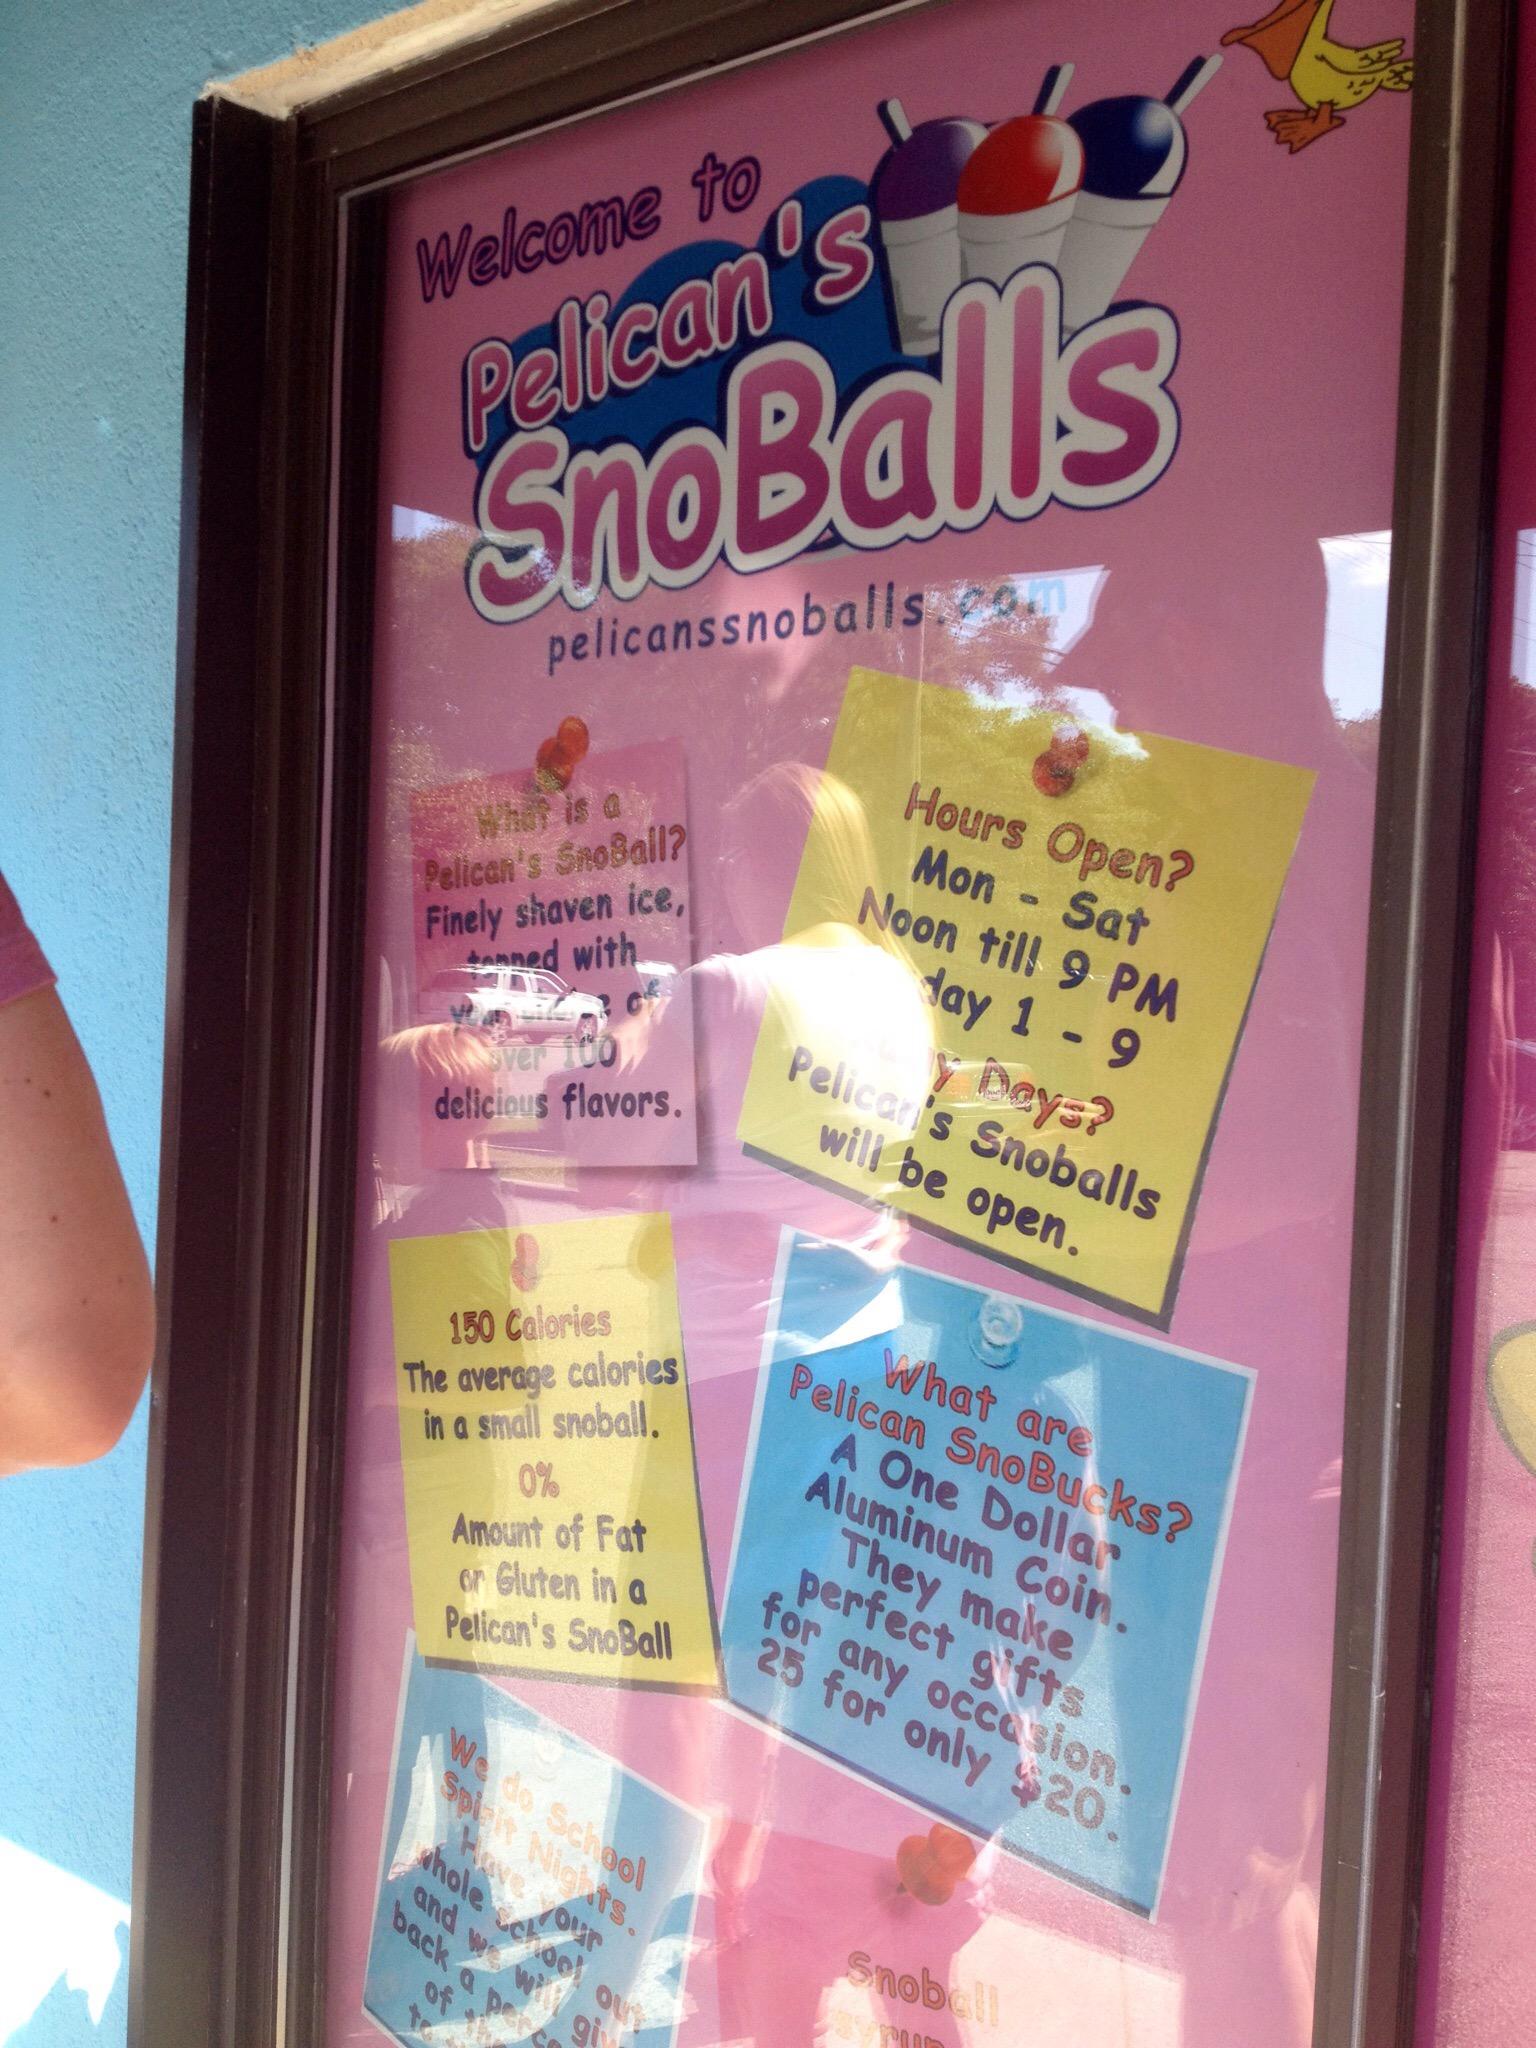 Welcome to
Pelican's
SnoBalls
pelicanssnoballs.com
What is a
Pelican's SnoBall?
Finely shaven ice,
topped with
your choice of
over 100
delicious flavors.
Hours Open?
Mon - Sat
Noon till 9 PM
day 1 - 9
Days?
Pelican's Snoballs
will be open.
150 Calories
The average calories
in a small snoball.
0%
Amount of Fat
or Gluten in a
Pelican's SnoBall
What are
Pelican SnoBucks?
A One Dollar
Aluminum Coin.
They make
perfect gifts
for any occasion.
25 for only $20.
We do School
Spirit Nights.
Have your
whole school out
and we will giv
back a perce
of the
Snoball
syrup